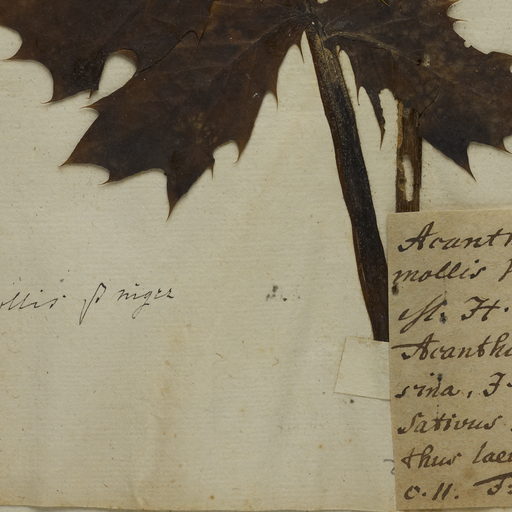 ollis β niger
Acanth
mollis
H.
Acanthu
sina, F
Sativus
thus laev
c. 11.